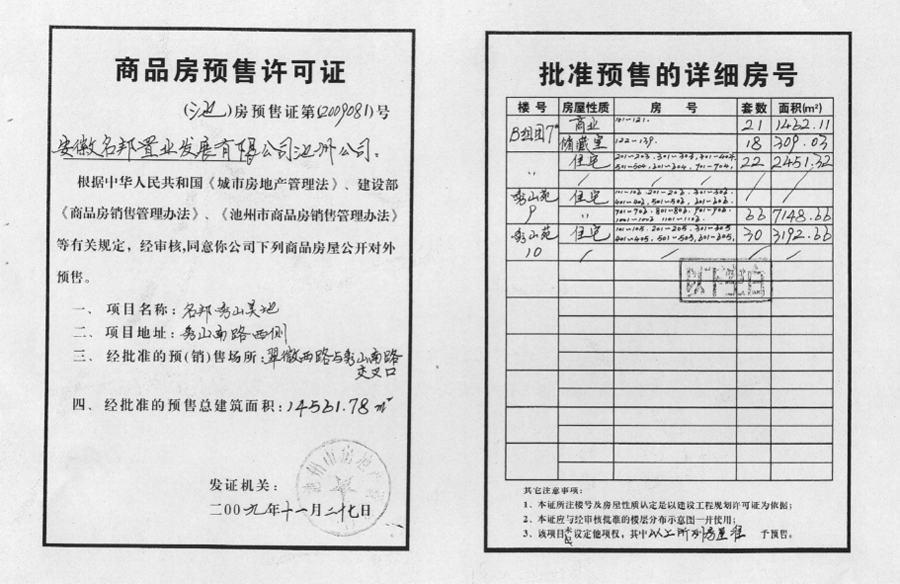 商品房预售许可证
(池)房预售证第(2009081)号
安徽名邦置业发展有限公司池州公司:
根据中华人民共和国《城市房地产管理法》、建设部
《商品房销售管理办法》、《池州市商品房销售管理办法》
等有关规定,经审核,同意你公司下列商品房屋公开对外
预售。
一、项目名称:名邦·秀山美地
二、项目地址:秀山南路西侧
三、经批准的预(销)售场所:翠微西路与秀山南路
交叉口
四、经批准的预售总建筑面积:14561.78 m²
发证机关:
二00九年十一月二十七日
批准预售的详细房号
楼号 房屋性质 房号 套数 面积(m²)
B组团7# 商业 101-121. 21 1462.11
储藏室 122-139. 18 309.03
〃 住宅 201-203. 301-303. 401-404. 22 2451.32
501-504. 601-604. 701-704.
秀山苑 住宅 101-106. 201-206. 301-306.
401-406. 501-506. 601-606.
9 〃 701-706. 801-806. 901-906. 66 7148.66
1001-1006 1101-1106.
秀山苑 住宅 101-105. 201-205. 301-305 30 3192.66
401-405. 501-505. 601-605.
10
以下空白
其它注意事项:
1、本证所注楼号及房屋性质认定是以建设工程规划许可证为依据;
2、本证应与经审核批准的楼层分布示意图一并使用;
3、该项目未设定他项权,其中以上所列房屋准予预售。